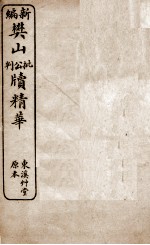 新編樊山批公判牘精華
東溪竹堂原本